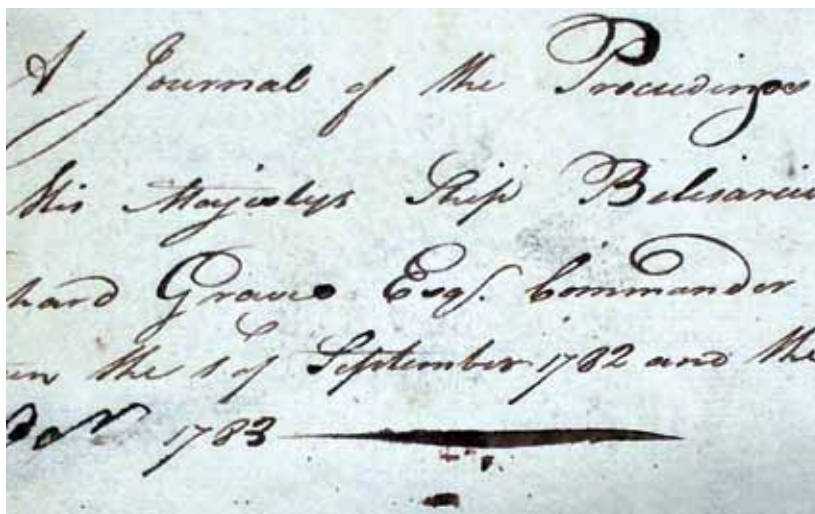 A Journal of the Proceedings
His Majestys Ship Belisarius
hard Graves Esqr. Commander
en the 1 of September 1782 and the
1783